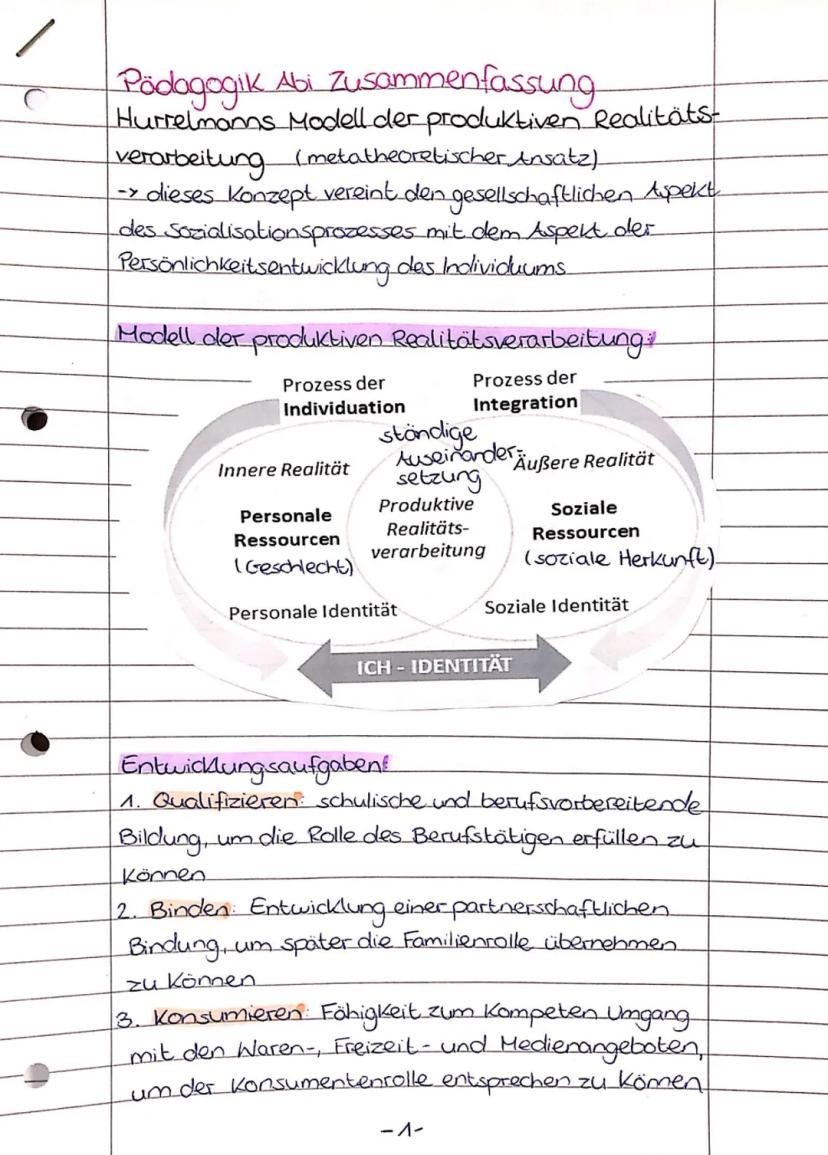 Pädagogik Abi Zusammenfassung
Hurrelmanns Modell der produktiven Realitäts-
verarbeitung (metatheoretischer Ansatz)
-> dieses Konzept vereint den gesellschaftlichen Aspekt
des Sozialisationsprozesses mit dem Aspekt der
Persönlichkeitsentwicklung des Individuums
Modell der produktiven Realitätsverarbeitung:
Prozess der
Individuation
Prozess der
Integration
ständige
Auseinander-
setzung
Innere Realität
Äußere Realität
Personale
Ressourcen
(Geschlecht)
Produktive
Realitäts-
verarbeitung
Soziale
Ressourcen
(soziale Herkunft)
Personale Identität
Soziale Identität
ICH - IDENTITÄT
Entwicklungsaufgaben:
1. Qualifizieren: schulische und berufsvorbereitende
Bildung, um die Rolle des Berufstätigen erfüllen zu
können
2. Binden: Entwicklung einer partnerschaftlichen
Bindung, um später die Familienrolle übernehmen
zu können
3. Konsumieren: Fähigkeit zum kompeten Umgang
mit den Waren-, Freizeit- und Medienangeboten,
um der Konsumentenrolle entsprechen zu können
-1-